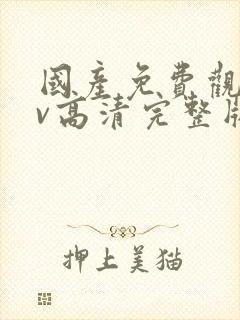 國產免費觀
v高清完整版
押上美猫